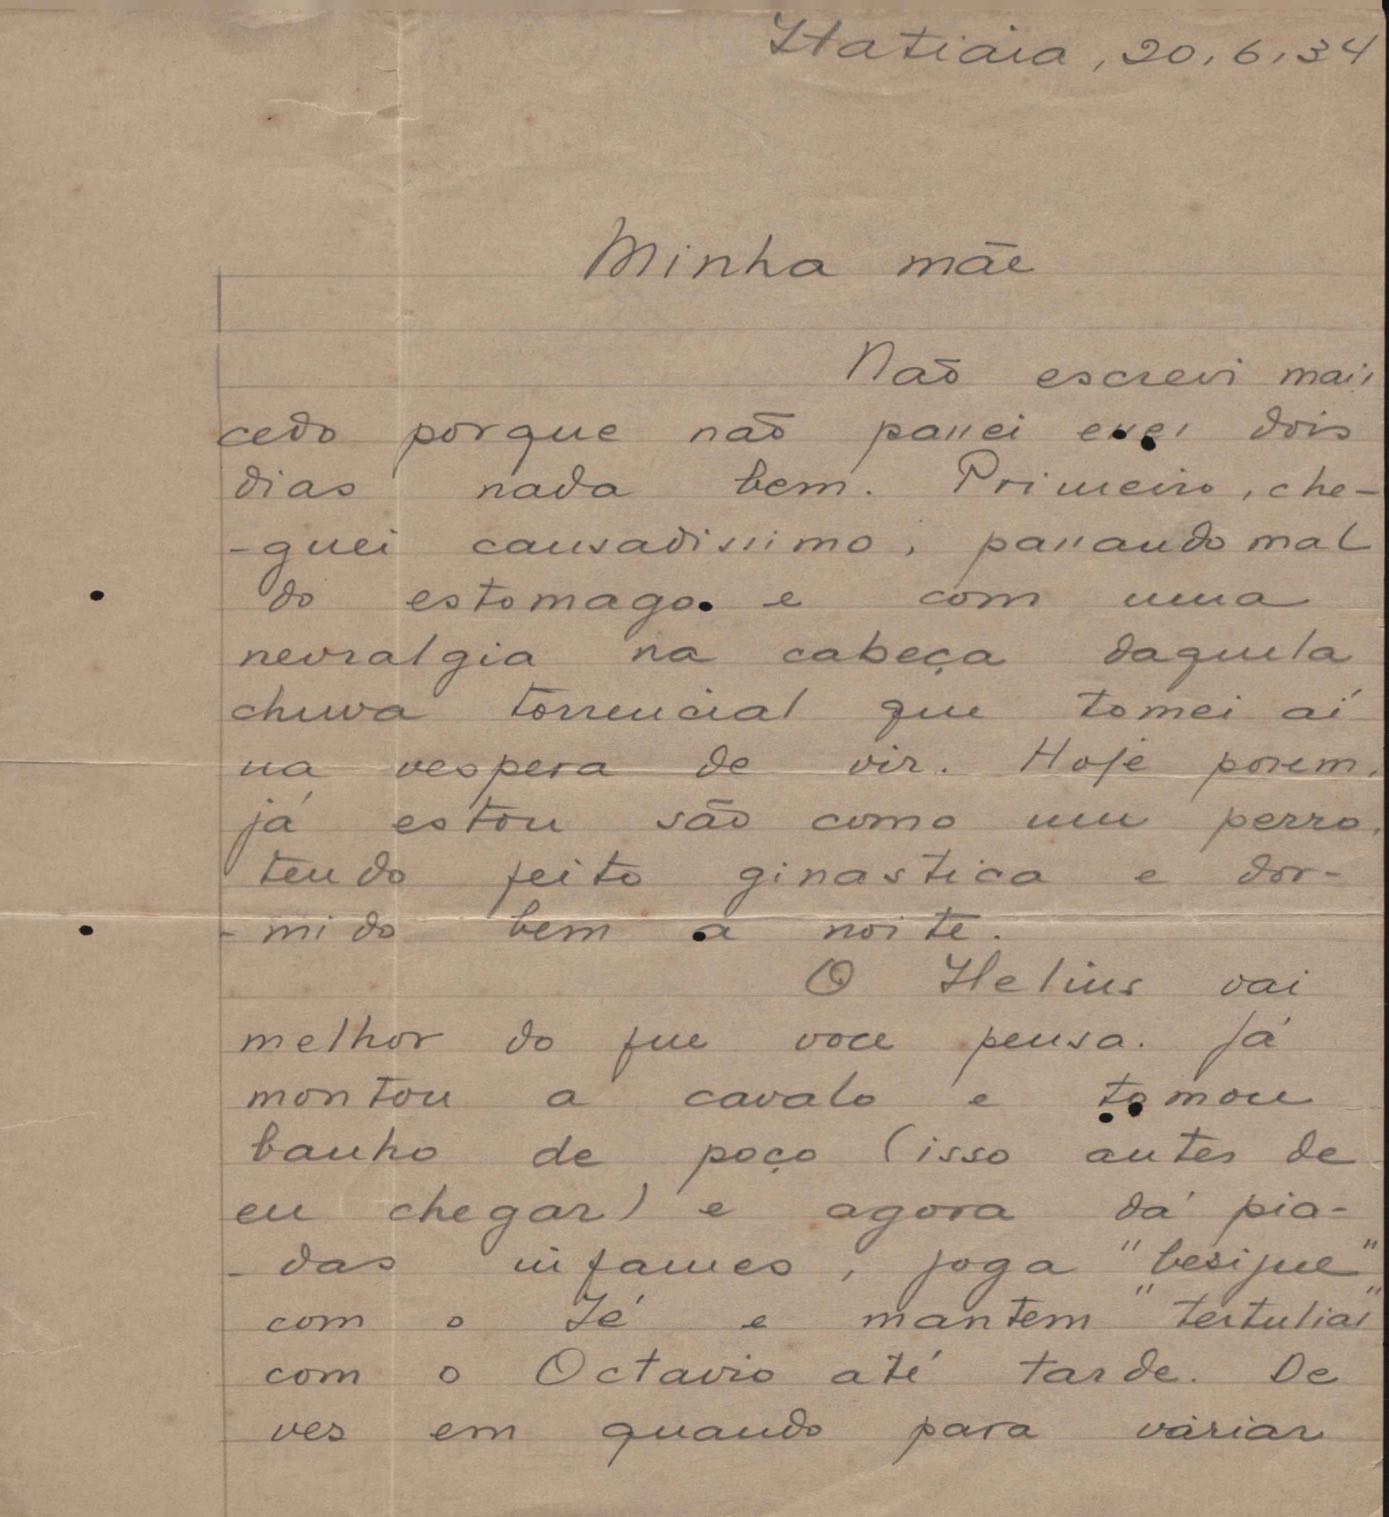 Itatiaia, 20, 6, 34
Minha mãe
Não escrevi mais
cedo porque não passei esses dois
dias nada bem. Primeiro, che-
-guei cansadissimo, passando mal
do estomago e com uma
nevralgia na cabeça daquela
chuva torrencial que tomei aí
na vespera de vir. Hoje porem,
já estou são como um perro,
tendo feito ginastica e dor-
-mido bem a noite.
O Helius vai
melhor do que voce pensa. Já
montou a cavalo e tomou
banho de poço (isso antes de
eu chegar) e agora dá pia-
-das infames, joga "besique"
com o Zé e mantem "tertulias"
com o Octavio até tarde. De
ves em quando para variar